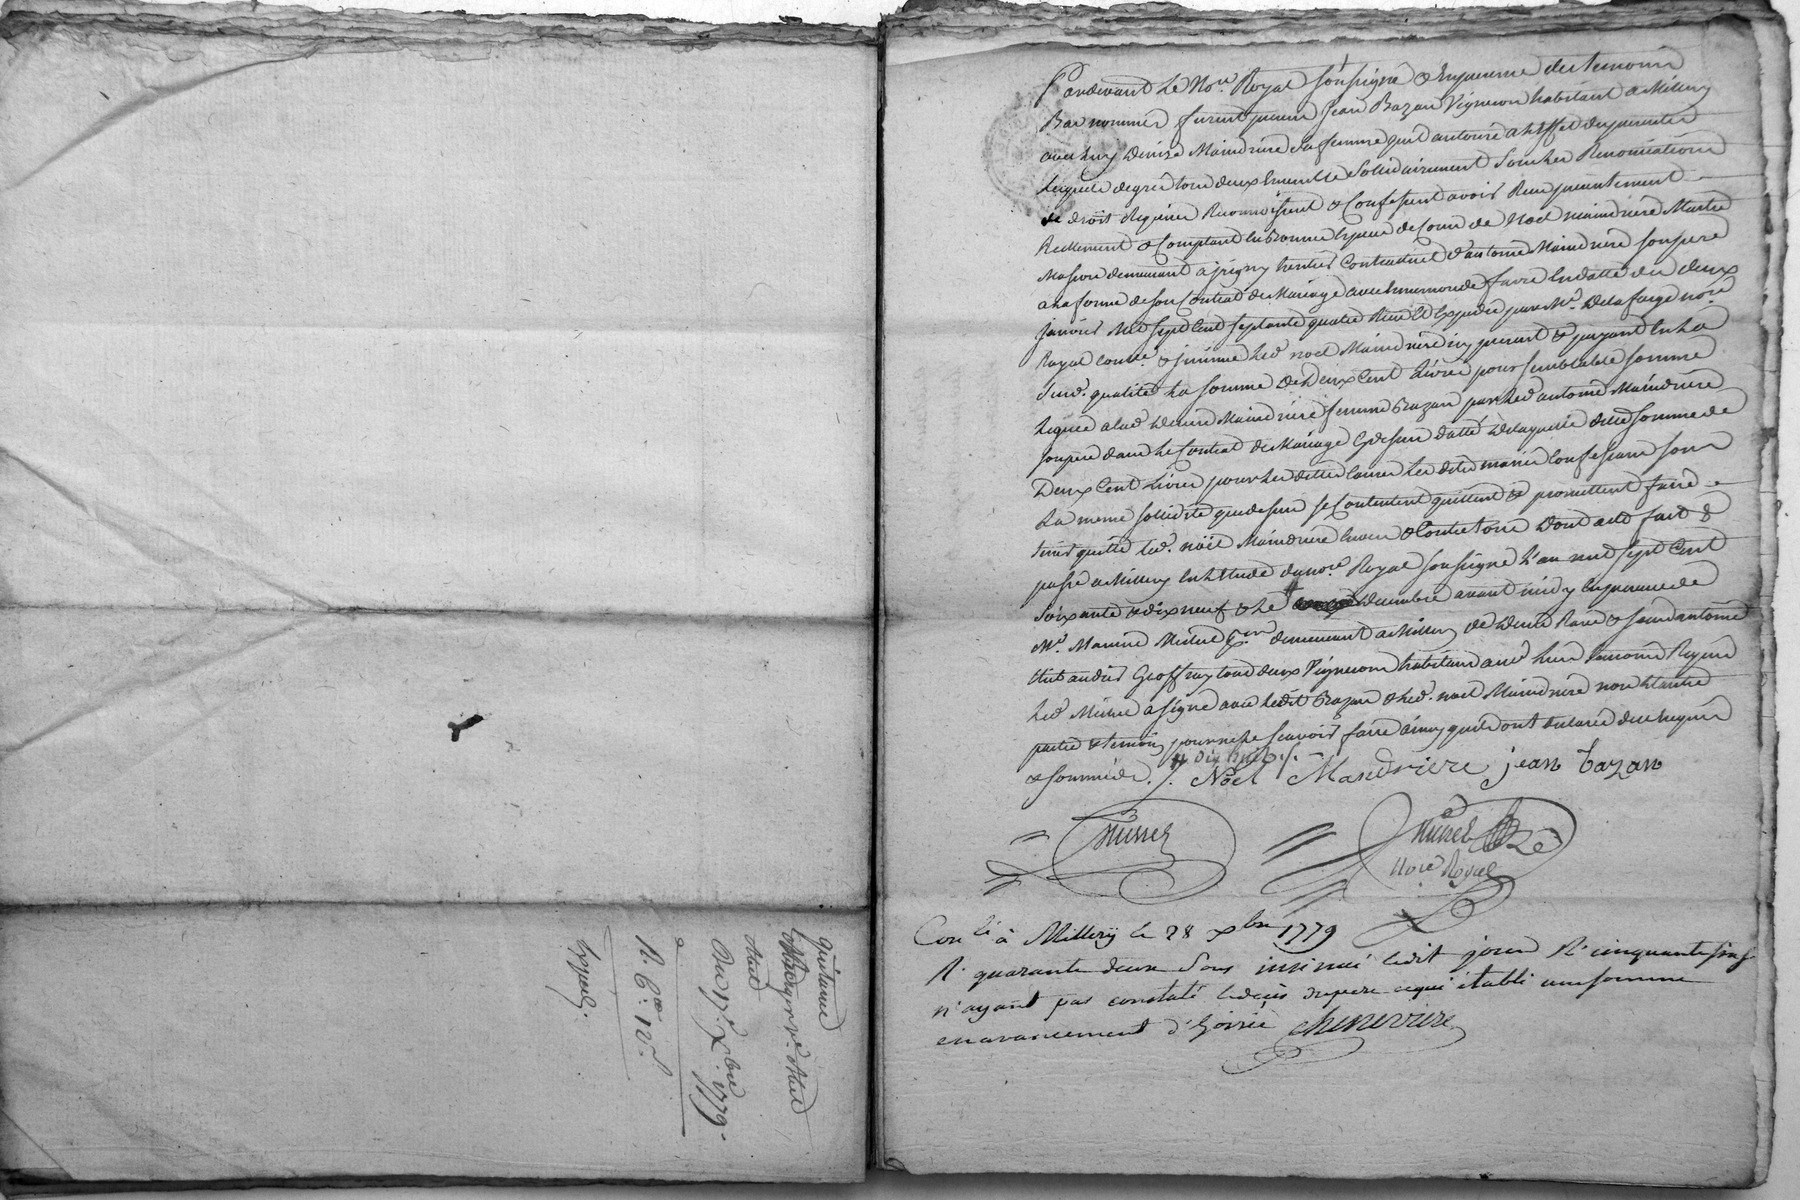 Pardevant Le No.re Royal Soussigné & En presence des temoins
Bas nommés furent presens Jean Bazan Vigneron habitant a Millery
avec luy Denise Maindriere sa femme quil autorise a l'Effet des presentes
lesquels de gré tous deux Ensemble Solidairement Sous les Renonciations
de droit Requises Reconnoissent & Confessent avoir Receu presentement
Reellement & Comptant En Bonnes Especes de Cours de Noel Maindriere Maitre
Masson demeurant a jrigny heritier Contractuel d'antoine Maindriere son pere
a la forme de son Contrat de Mariage avec Ennemonde favre En datte du deux
Janvier Mil Sept Cent Septante quatre Receu Et Expedié par M.e Delafarge no.re
Royal & led noel Maindriere icy present & payant En La
Susd. qualité La somme de Deux Cent Livres pour semblable somme
leguée a lad Denise Maindriere femme Bazan par led antoine Maindriere
son pere dans le Contrat de Mariage Cy dessus datté de laquelle ditte somme de
Deux Cent Livres pour les dittes Causes les dits mariés Confessans sous
La meme solidité que dessus se Contentent quittent & promettent faire
tenir quitte led. noël Maindriere Envers & Contre tous Dont acte fait &
passé a Millery En L'Etude du no.re Royal Soussigné L'an mil sept Cent
Soixante & dix neuf & Le decembre avant midy En presence de
M.e Musset demeurant a Millery de & sieur antoine
andré Geoffray tous deux Vignerons habitans aud lieu temoins Requis
led Musset a signé avec ledit Bazan & led. noel Maindriere non L'autre
partie & temoin pour ne le scavoir faire ainsy quils ont declaré de ce Enquis
& sommés. /. # dix huit /.
Noel Mandriere jean bazan
Musset
Musset
No.re Royal
Con.lé à Millery le 28 xbre 1779
R. quarante deux Sous insinué ledit jour R. cinquante six s
n'ayant pas constaté le decès du pere ce qui établi une somme
en avancement d'hoirie Chenevriere
quittance
1779.
R. 6.
Expediée.